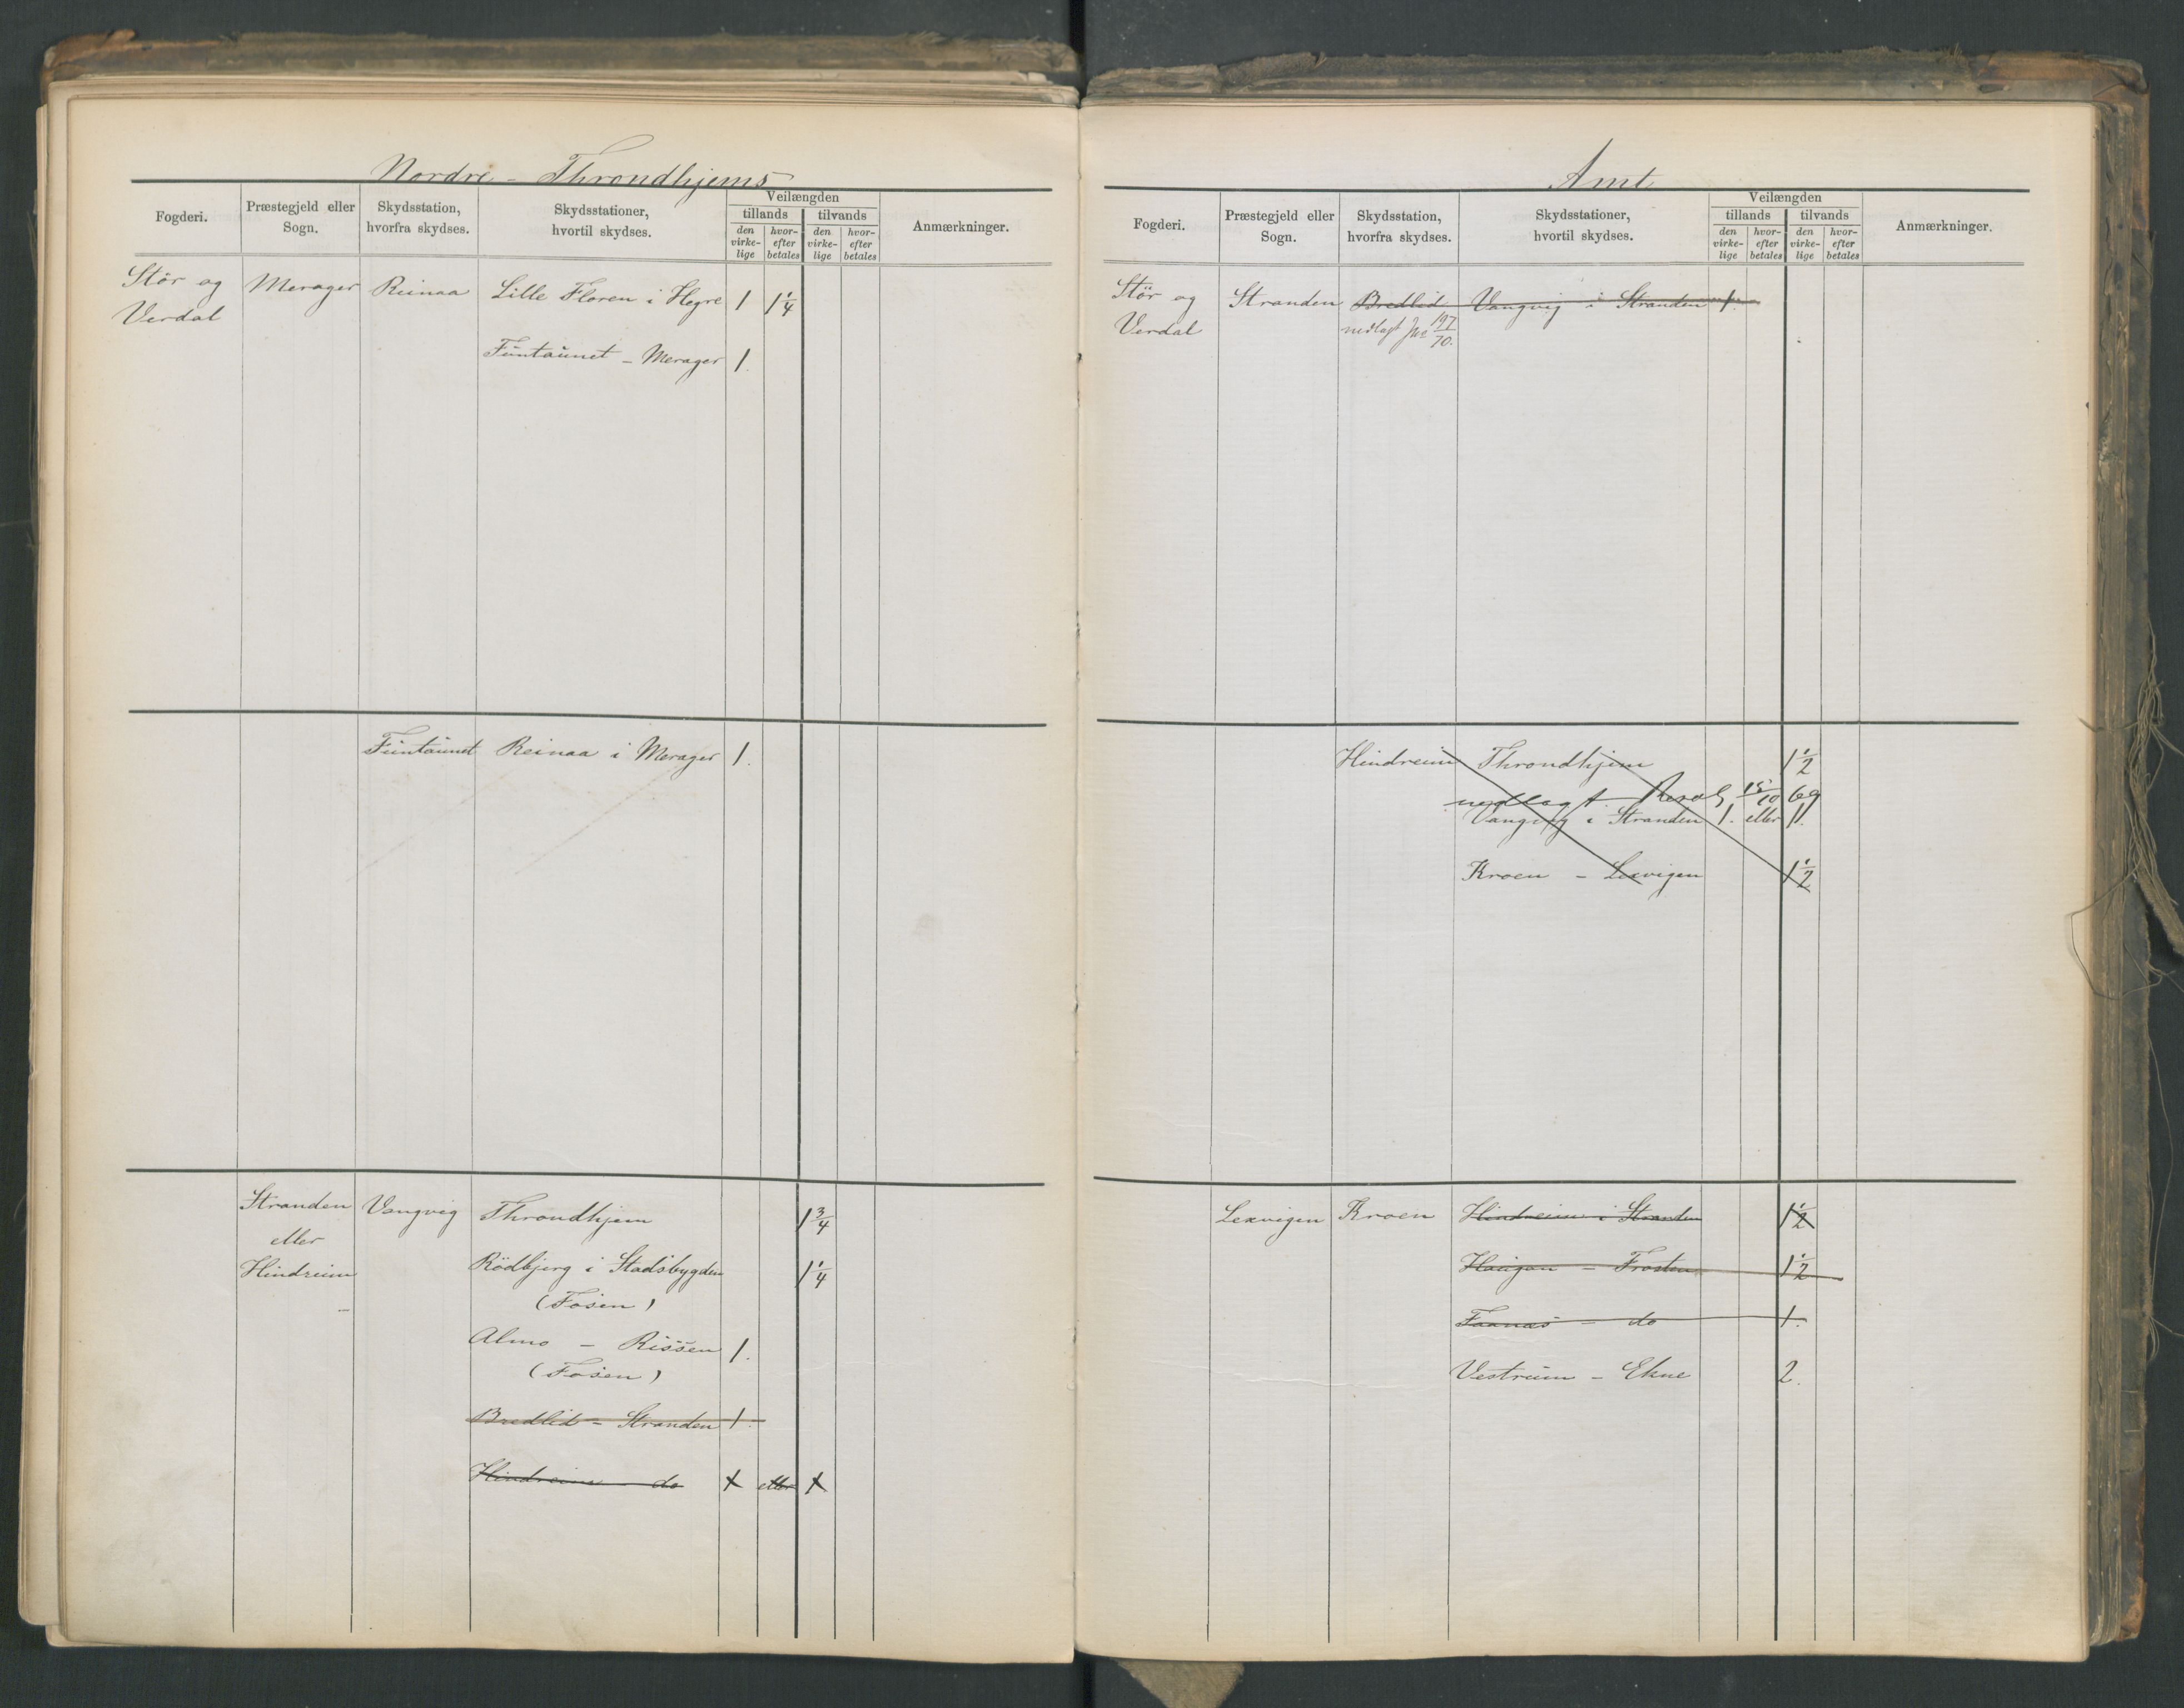 Nordre - Throndhjems
Fogderi. Præstegjeld eller Sogn. Skydsstation, hvorfra skydses. Skydsstationer, hvortil skydses. Veilængden tillands tilvands den virke-lige hvor-efter betales den virke-lige hvor-efter betales Anmærkninger.
Stör og Merager Reinaa Lille Floren i Hegre 1 1 1/4
Verdal
Funtaunet - Merager 1.
Funtaunet Reinaa i Merager 1.
Stranden Vangvig Throndhjem 1 3/4
eller
Hindreim Rödbjerg i Stadsbygden 1 1/4
(Fosen)
Almo - Rissen 1.
(Fosen)
Bredlid - Stranden 1.
Hindreim do 1 eller 1
Amt
Fogderi. Præstegjeld eller Sogn. Skydsstation, hvorfra skydses. Skydsstationer, hvortil skydses. Veilængden tillands tilvands den virke-lige hvor-efter betales den virke-lige hvor-efter betales Anmærkninger.
Stör og Stranden Bredlid Vangvig i Stranden 1.
Verdal nedlagt 70.
Hindreim Throndhjem 1 1/2
nedlagt Resol 15/10 69
Vangvig i Stranden 1. eller 1.
Kroen - Lexvigen 1 1/2
Lexvigen Kroen Hindreim i Stranden 1 1/2
Haugan - Frosten 1 1/2
Faanæs - do 1.
Vestrum - Ekne 2.